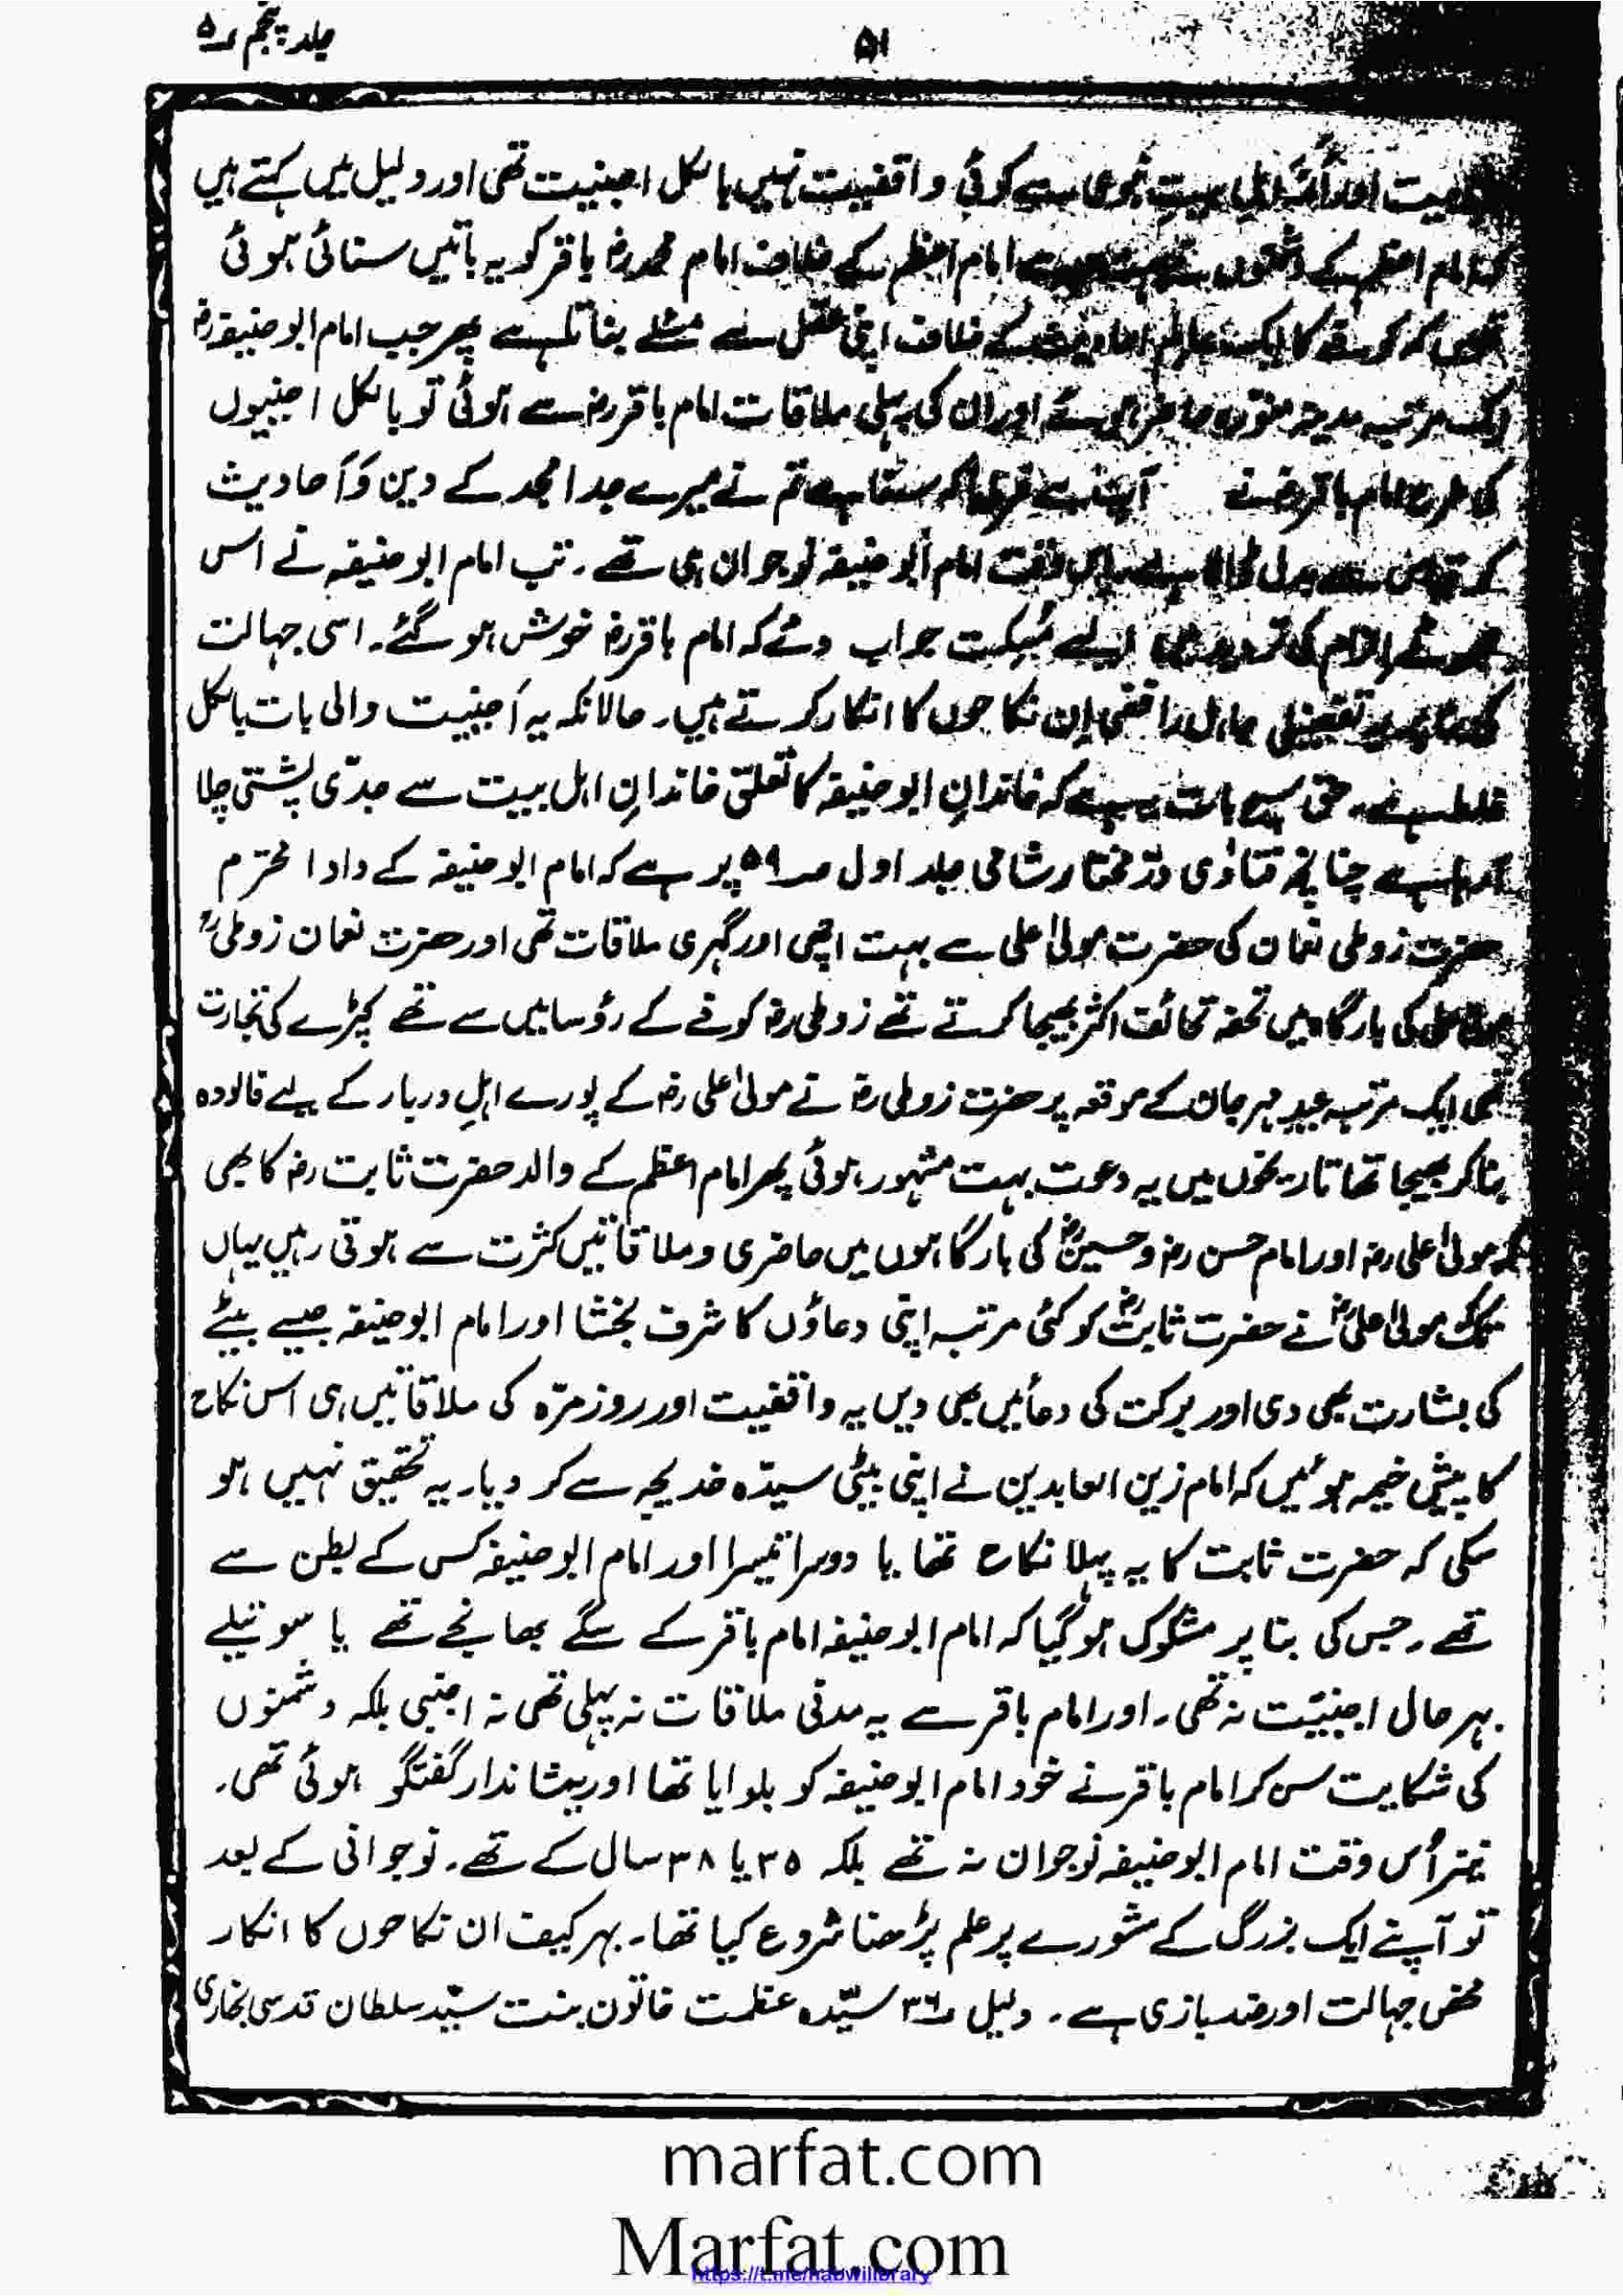 جلد پنجم ۵
۵۱
اور ائمہ اہل بیت نبوی سے کوئی واقفیت نہیں بالکل اجنبیت تھی اور دلیل میں کہتے ہیں
کہ امام اعظم کے دشمنوں نے امام اعظم کے خلاف امام محمد رضہ باقر کو یہ باتیں سنائی ہوئی
تھیں کہ کوفے کا ایک عالم احادیث کے خلاف اپنی عقل سے مسئلے بناتا ہے پھر جب امام ابو حنیفہ رضہ
ایک مرتبہ مدینہ منورہ حاضر ہوئے اور ان کی پہلی ملاقات امام باقر رضہ سے ہوئی تو بالکل اجنبیوں
کی طرح امام باقر رضہ نے آپ سے فرمایا کہ سنا ہے تم نے میرے جد امجد کے دین وَاَحادیث
کو قیاس سے بدل ڈالا ہے اس وقت امام ابو حنیفہ نوجوان ہی تھے۔ تب امام ابو حنیفہ نے اس
جھوٹے الزام کی تردید میں ایسے مُسکت جواب دئے کہ امام باقر رضہ خوش ہو گئے۔ اسی جہالت
کی بنا پر تفضیلی رافضی اِن نکاحوں کا انکار کرتے ہیں۔ حالانکہ یہ اَجنبیت والی بات بالکل
غلط ہے۔ حق سچ بات یہ ہے کہ خاندانِ ابو حنیفہ کا تعلق خاندانِ اہل بیت سے جدّی پشتی چلا
آ رہا ہے چنانچہ فتاوٰی درّ مختار شامی جلد اول صـ ۵۹ پر ہے کہ امام ابو حنیفہ کے دادا محترم
حضرت زوطی نعمان کی حضرت مولیٰ علی سے بہت اچھی اور گہری ملاقات تھی اور حضرت نعمان زوطیؒ
مولیٰ علی کی بارگاہ میں تحفہ تحائف اکثر بھیجا کرتے تھے زوطی رضہ کوفے کے رؤسا میں سے تھے کپڑے کی تجارت
تھی ایک مرتبہ عیدِ مہرجان کے موقعہ پر حضرت زوطی رضہ نے مولیٰ علی رضہ کے پورے اہلِ دربار کے لیے فالودہ
بنا کر بھیجا تھا تاریخوں میں یہ دعوت بہت مشہور ہوئی پھر امام اعظم کے والد حضرت ثابت رضہ کا بھی
مولیٰ علی رضہ اور امام حسن رضہ و حسینؓ کی بارگاہوں میں حاضری و ملاقاتیں کثرت سے ہوتی رہیں یہاں
تک مولیٰ علیؓ نے حضرت ثابتؓ کو کئی مرتبہ اپنی دعاؤں کا شرف بخشا اور امام ابو حنیفہ جیسے بیٹے
کی بشارت بھی دی اور برکت کی دعائیں بھی دیں یہ واقفیت اور روز مرّہ کی ملاقاتیں ہی اس نکاح
کا پیش خیمہ ہوئیں کہ امام زین العابدین نے اپنی بیٹی سیدہ خدیجہ سے کر دیا۔ یہ تحقیق نہیں ہو
سکی کہ حضرت ثابت کا یہ پہلا نکاح تھا یا دوسرا تیسرا اور امام ابو حنیفہ کس کے بطن سے
تھے۔ جس کی بنا پر مشکوک ہو گیا کہ امام ابو حنیفہ امام باقر کے سگے بھانجے تھے یا سوتیلے
بہر حال اجنبیّت نہ تھی۔ اور امام باقر سے یہ مدنی ملاقات نہ پہلی تھی نہ اجنبی بلکہ دشمنوں
کی شکایت سن کر امام باقر نے خود امام ابو حنیفہ کو بلوایا تھا اور یہ شاندار گفتگو ہوئی تھی۔
نیز اُس وقت امام ابو حنیفہ نوجوان نہ تھے بلکہ ۳۵ یا ۳۸ سال کے تھے۔ نوجوانی کے بعد
تو آپ نے ایک بزرگ کے مشورے پر علم پڑھنا شروع کیا تھا۔ بہر کیف ان نکاحوں کا انکار
محض جہالت اور ضد بازی ہے۔ دلیل ۳۶ سیّدہ عظمت خاتون بنت سیّد سلطان قدسی بخاری
marfat.com
Marfat.com
https://t.me/nabwilibrary